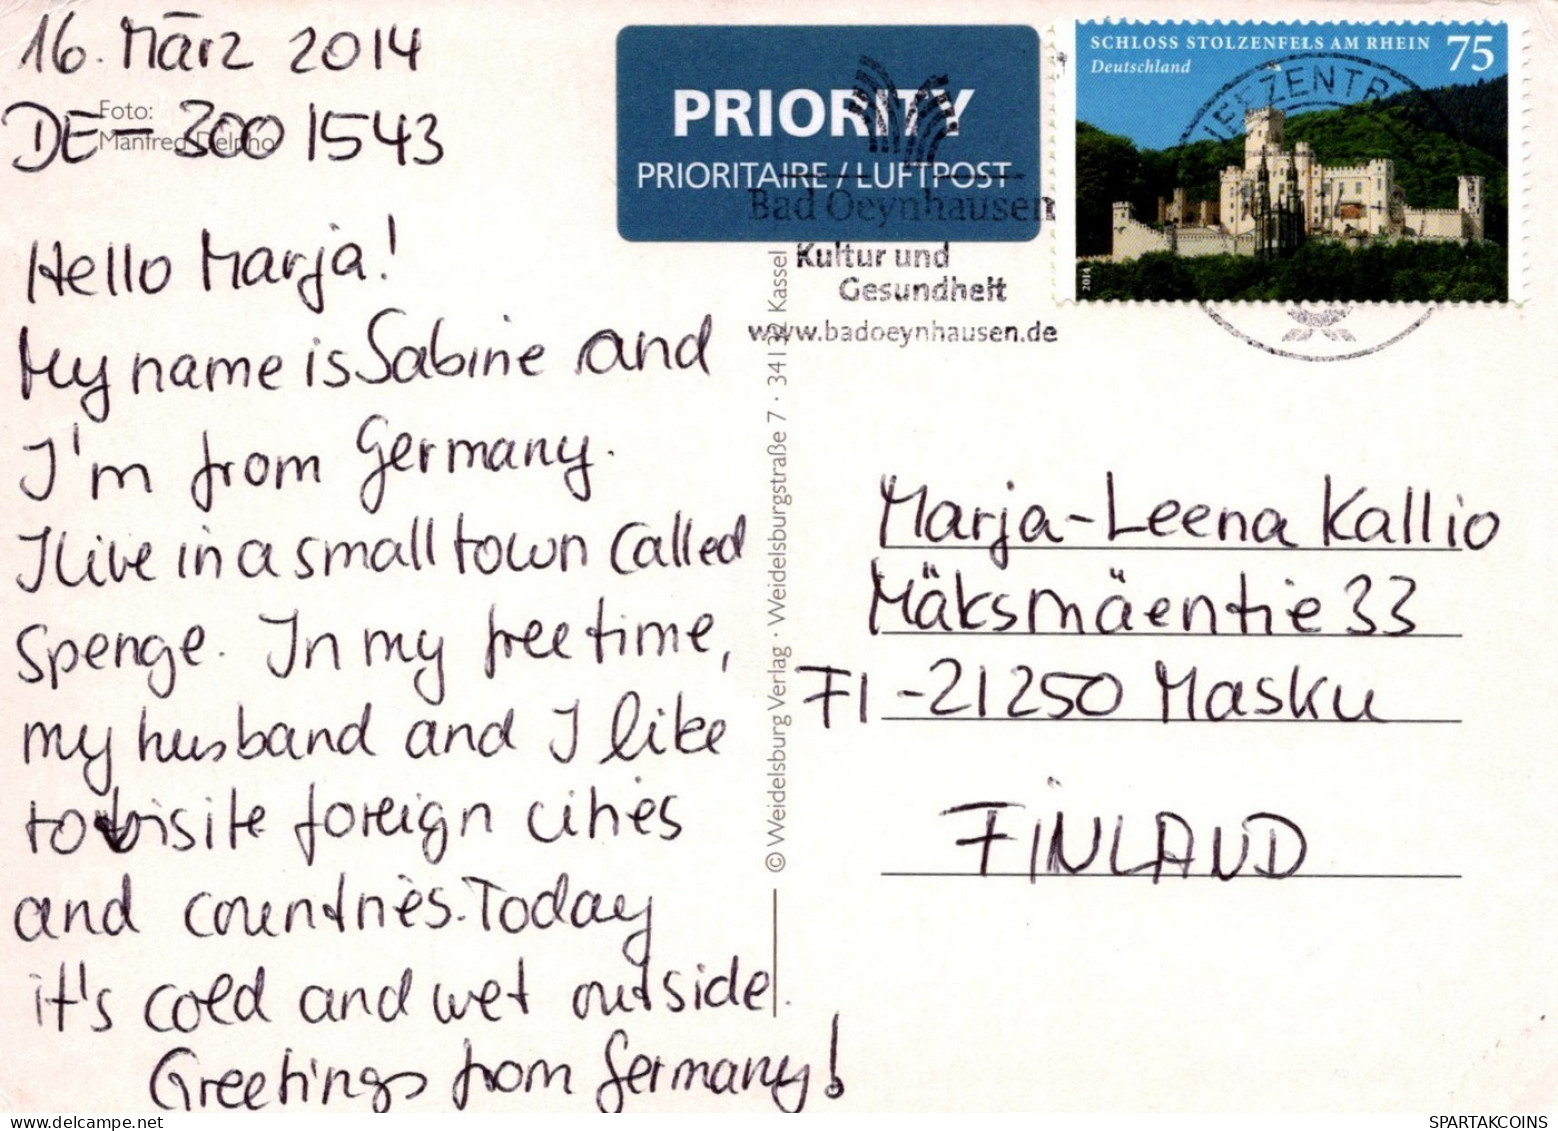 16. März 2014
DE-3001543
Foto:
Manfred Delpho
Hello Marja!
My name is Sabine and
I'm from Germany.
I live in a small town called
Spenge. In my freetime,
my husband and I like
to visite foreign cities
and countries. Today
it's cold and wet outside.
Greetings from Germany!
© Weidelsburg Verlag · Weidelsburgstraße 7 · 34132 Kassel
PRIORITY
PRIORITAIRE / LUFTPOST
Bad Oeynhausen
Kultur und
Gesundheit
www.badoeynhausen.de
SCHLOSS STOLZENFELS AM RHEIN 75
Deutschland
2014
Marja-Leena Kallio
Mäksmäentie 33
FI-21250 Masku
FINLAND
SPARTAKCOINS